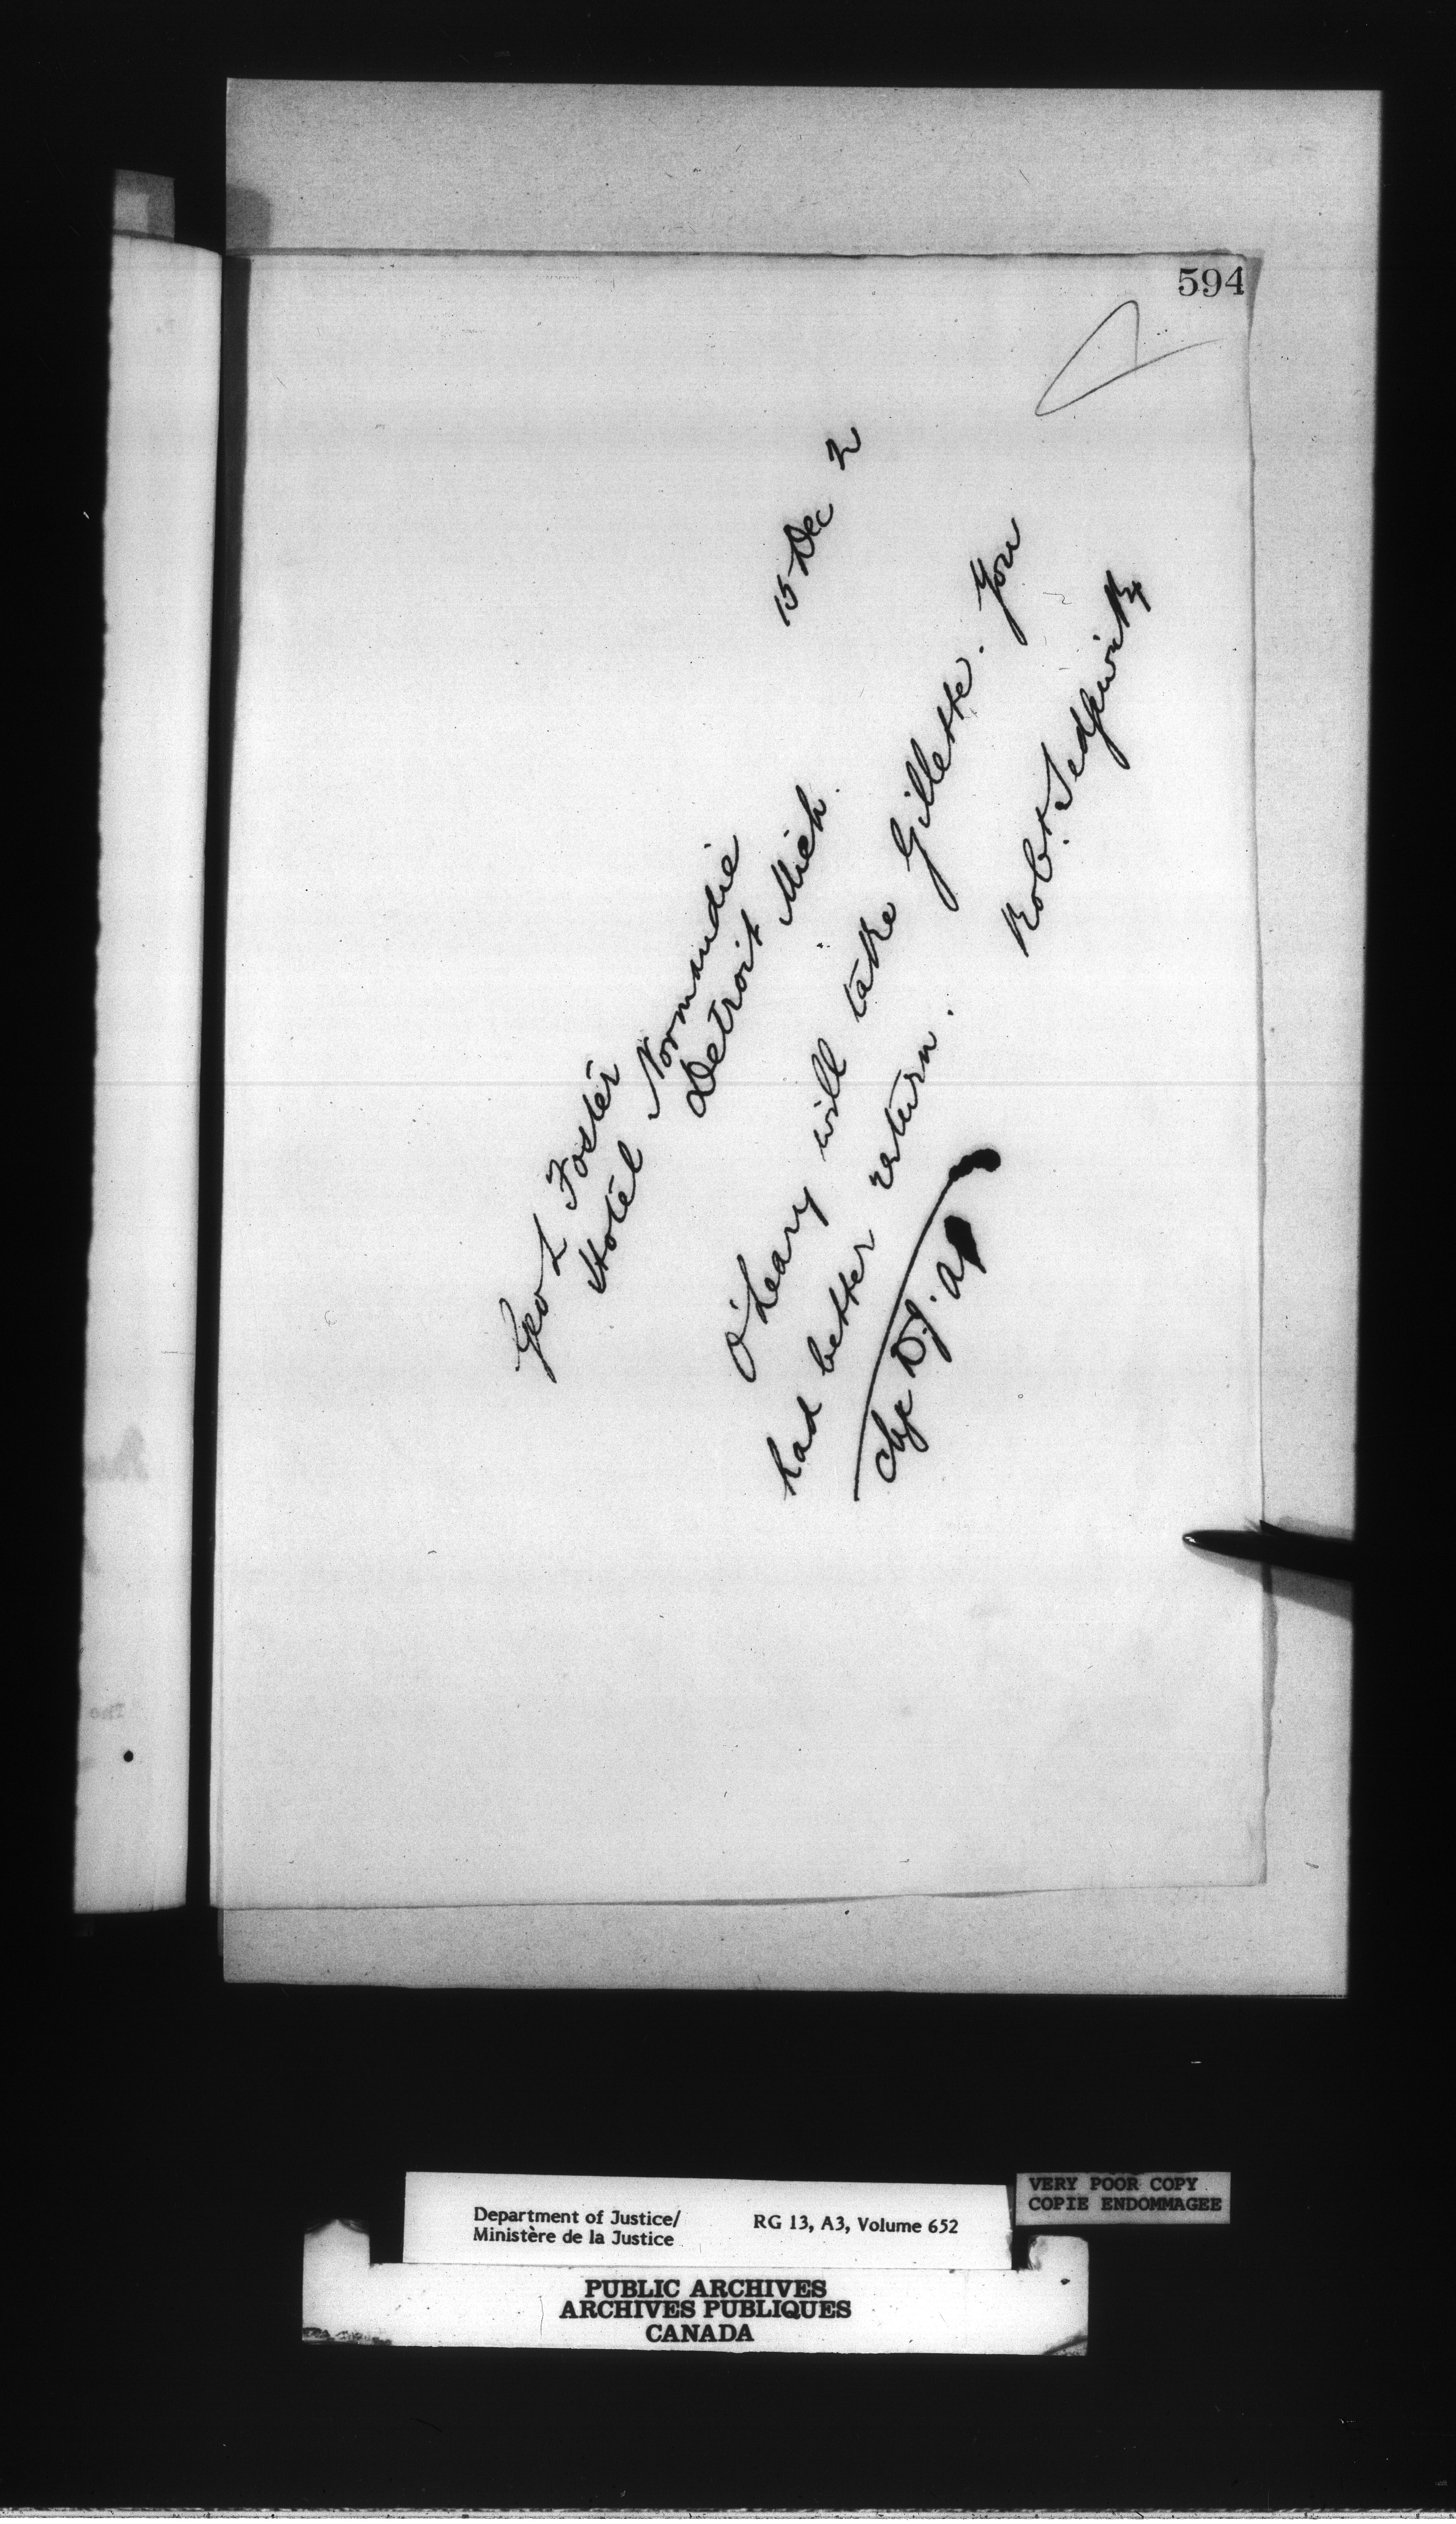 594
15 Dec 2
Geo L Foster
Hotel Normandie
Detroit Mich.
O'Leary will take Gillette. You
had better return.
Robt. Sedgewick
Chg D.J. a/c
VERY POOR COPY
COPIE ENDOMMAGEE
Department of Justice/ RG 13, A3, Volume 652
Ministère de la Justice
PUBLIC ARCHIVES
ARCHIVES PUBLIQUES
CANADA